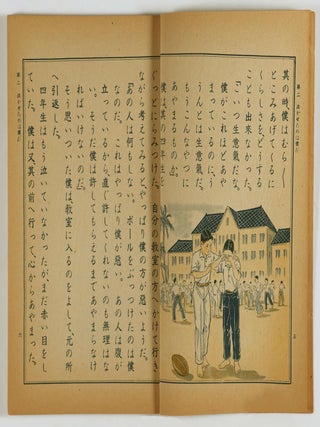 其の時、僕はむら〱
とこみあげてくるに
くらしさを、どうする
ことも出来なかった。
「こいつ生意氣だな。
僕がこれほどあや
まってゐるのに、う
うんとは生意氣だ。
もうこんなやつに
あやまるものか。」
僕は、其の四年生を
ぐっとにらみつけた。自分の教室の方へかけて行き
ながら考えてみると、やっぱり僕の方が悪いようだ。
「あの人は何もしない。ボールをぶっつけたのは僕
なのだ。これはやっぱり僕が悪い。あの人は腹が
立っているから、直ぐ許してくれないのも無理はな
い。そうだ僕は許してもらえるまであやまらなけ
ればいけないのだ。」
そう思いついた僕は、教室に入るのをよして、元の所
へ引返した。
四年生はもう泣いていなかったが、まだ赤い目をし
ていた。僕は又、其の前へ行って、心からあやまった。